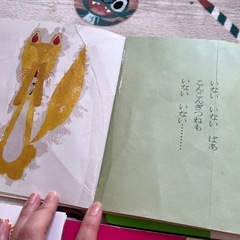 いない いない ばあ
こんこんぎつねも
いない いない………